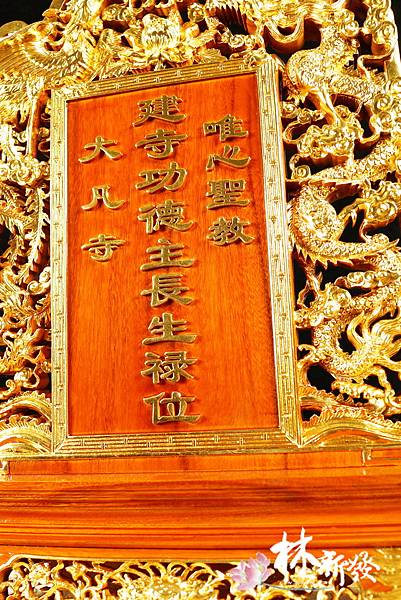 唯心聖教
建寺功德主長生祿位
大凡寺
林新發